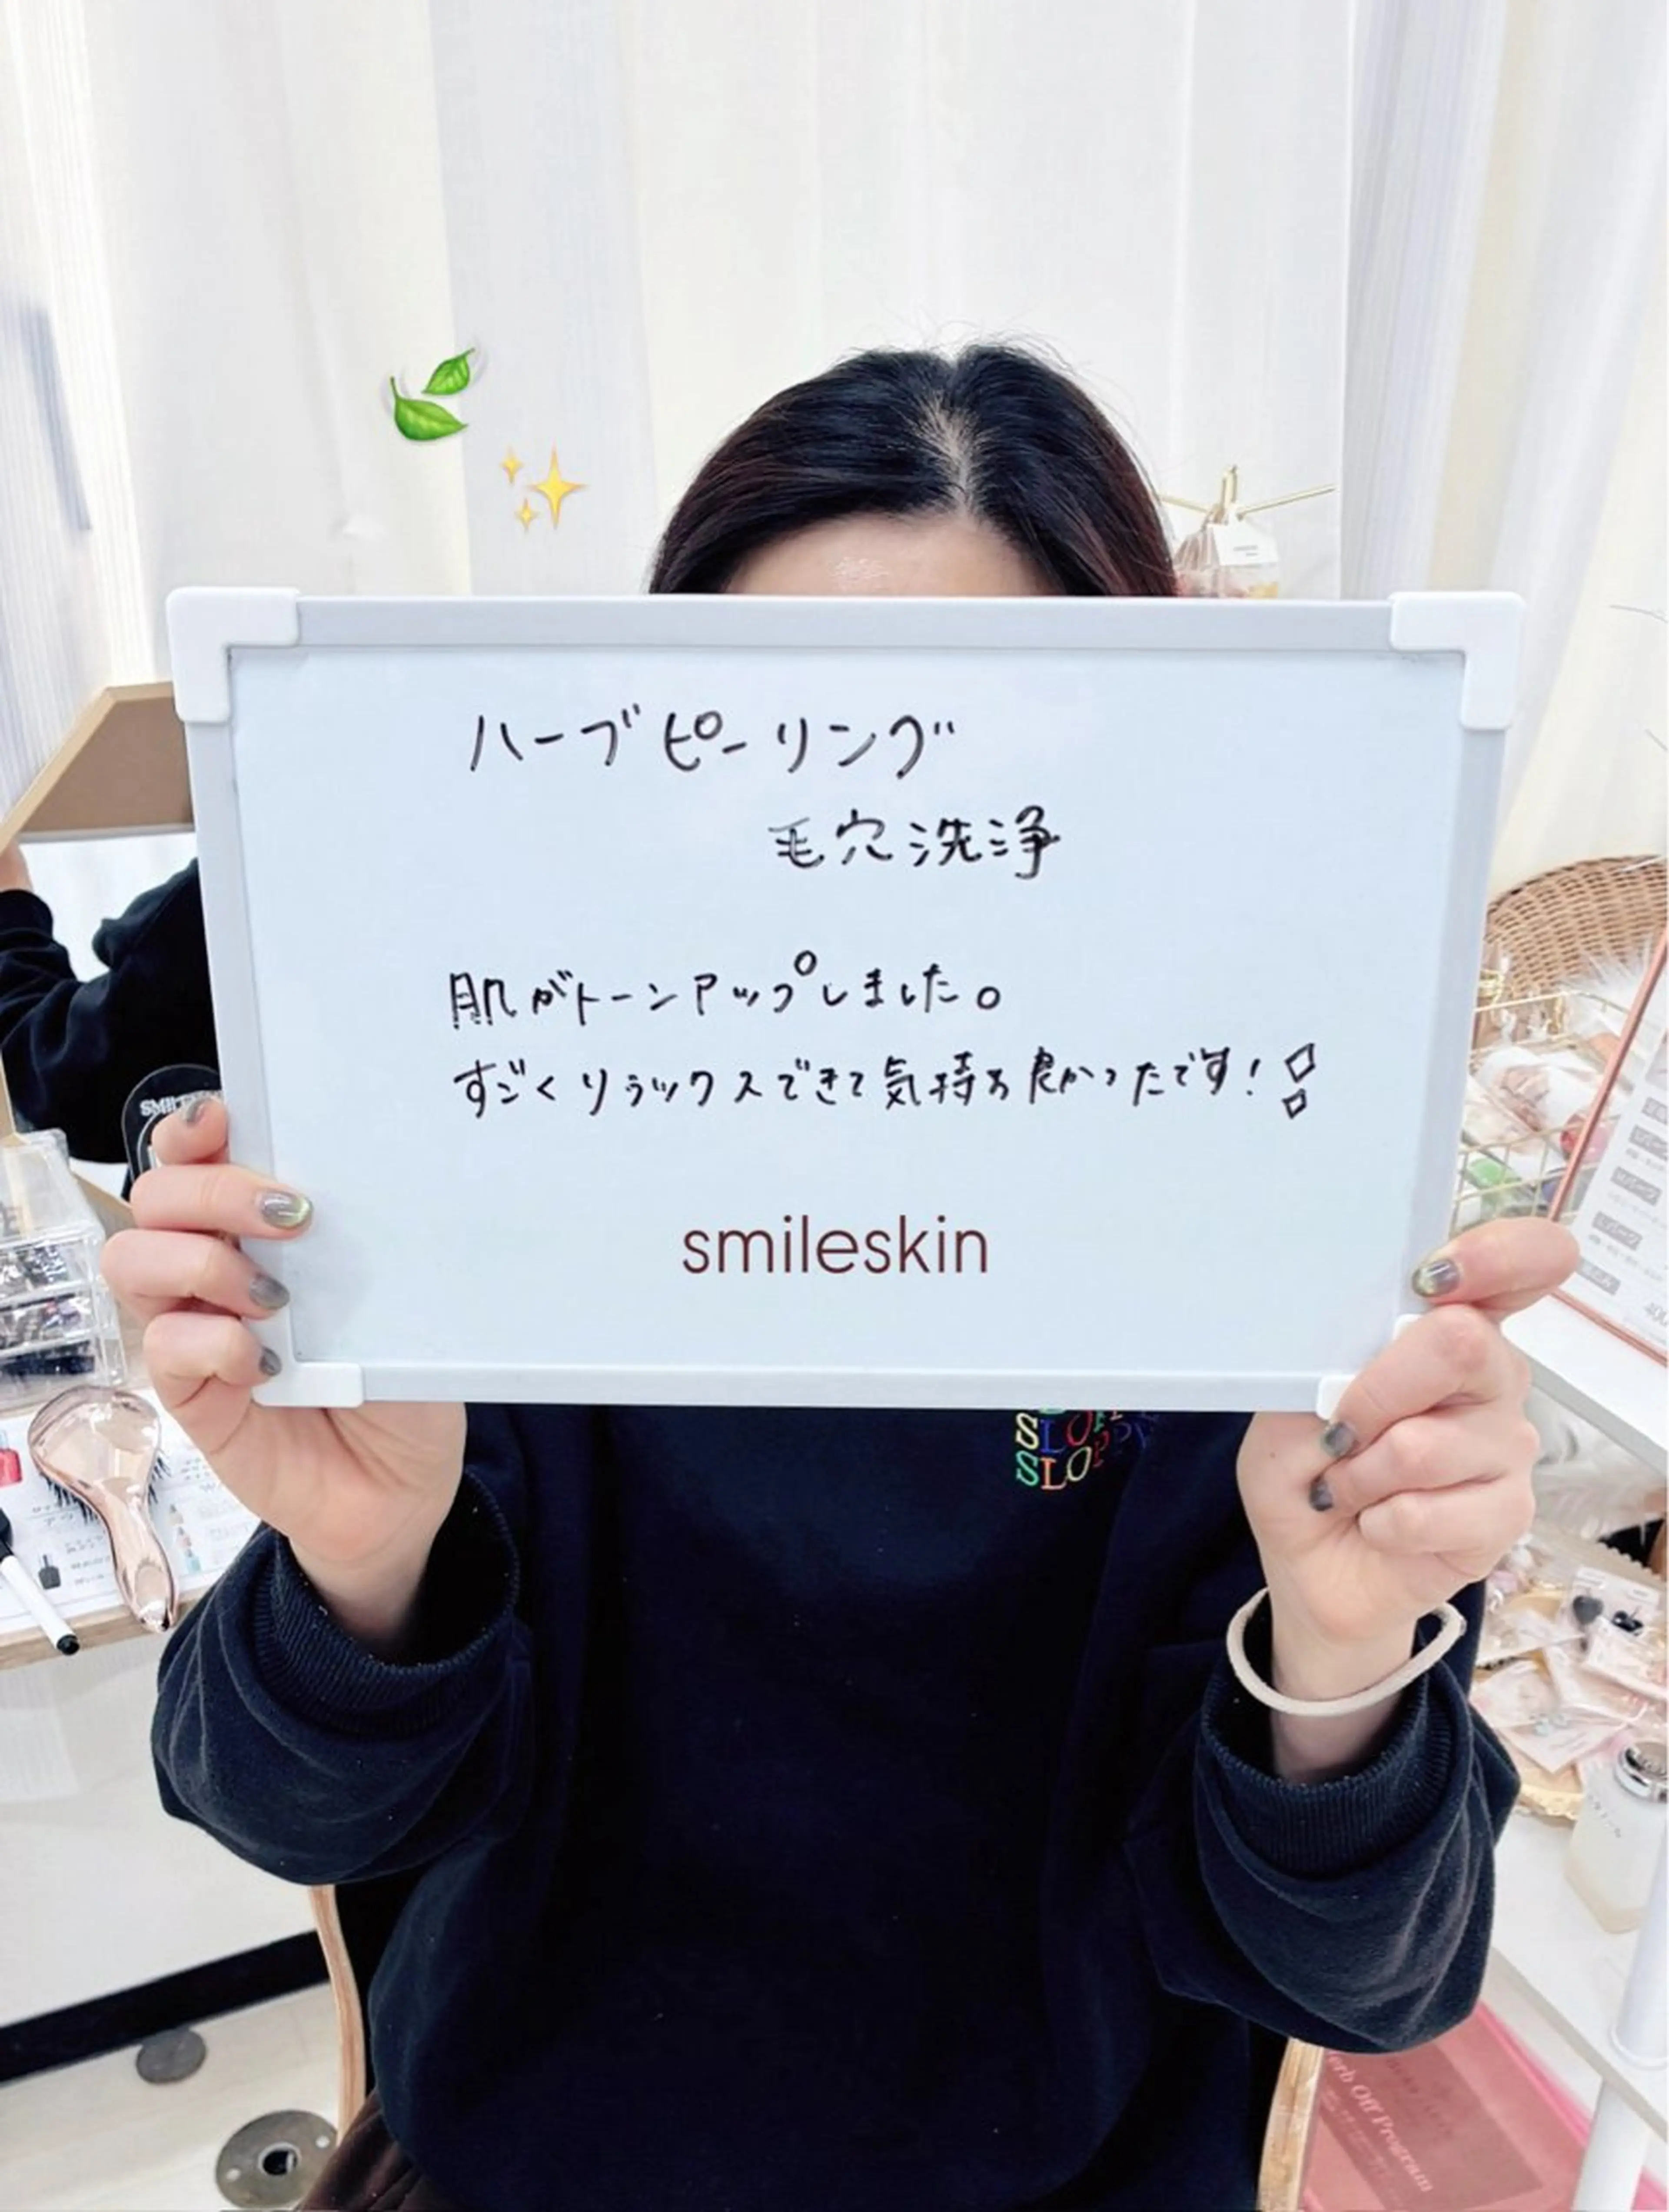 ハーブピーリング
毛穴洗浄
肌がトーンアップしました。
すごくリラックスできて気持ち良かったです！！
smileskin
SLOPPY
SLOPP
erb Off Program